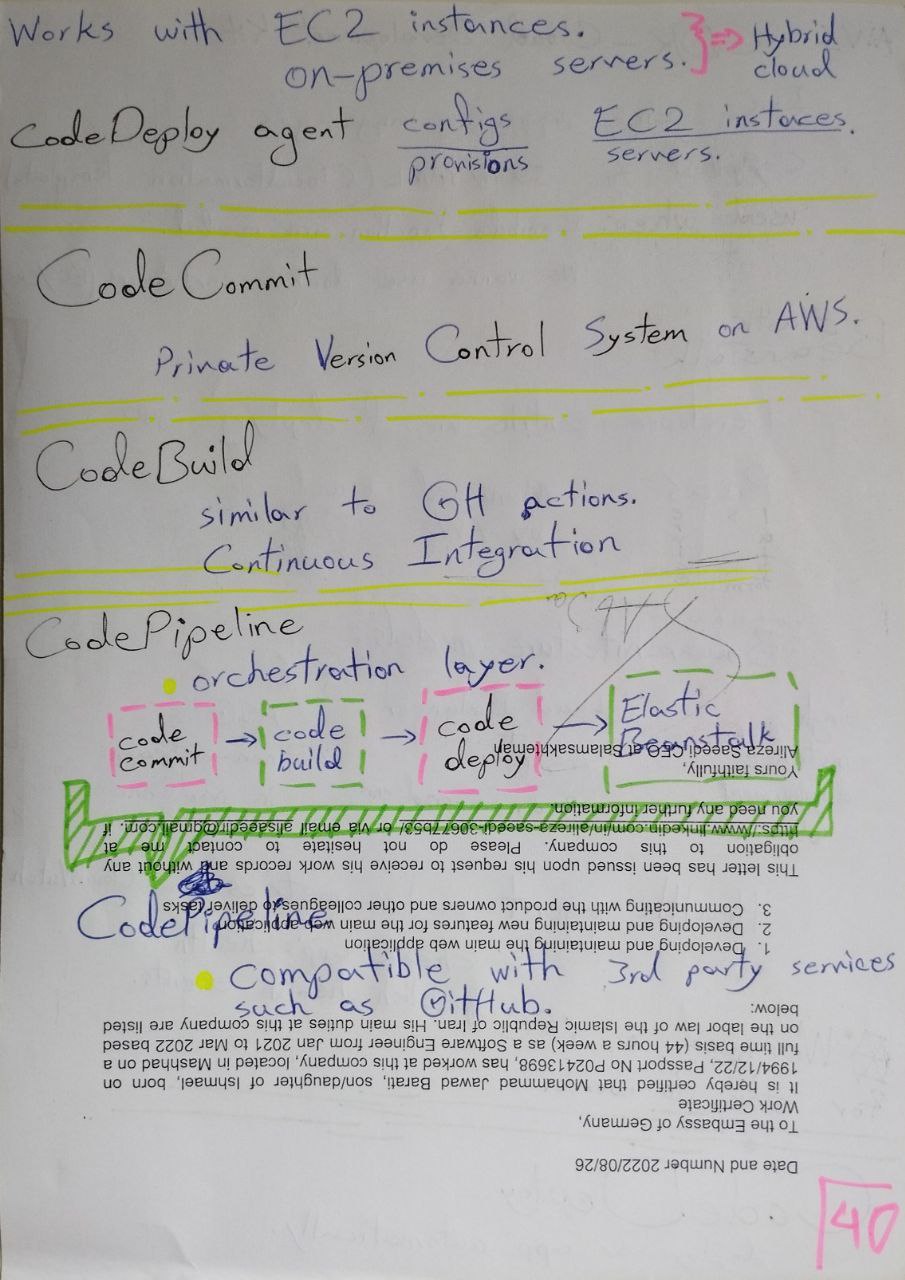 Works with EC2 instances.
on-premises servers. } ⇒ Hybrid cloud
CodeDeploy agent configs EC2 instaces.
provisions servers.
CodeCommit
Private Version Control System on AWS.
CodeBuild
similar to GH actions.
Continuous Integration
CodePipeline
orchestration layer.
code commit → code build → code deploy → Elastic Beanstalk
CodePipeline
compatible with 3rd party services
such as GitHub.
40
Date and Number 2022/08/26
To the Embassy of Germany,
Work Certificate
It is hereby certified that Mohammad Javad Barati, son/daughter of Ishmael, born on
1994/12/22, Passport No P02413698, has worked at this company, located in Mashhad on a
full time basis (44 hours a week) as a Software Engineer from Jan 2021 to Mar 2022 based
on the labor law of the Islamic Republic of Iran. His main duties at this company are listed
below:
1. Developing and maintaining the main web application
2. Developing and maintaining new features for the main web application
3. Communicating with the product owners and other colleagues to deliver tasks
This letter has been issued upon his request to receive his work records and without any
obligation to this company. Please do not hesitate to contact me at
https://www.linkedin.com/in/alireza-saeedi-3067 or via email if
you need any further information.
Yours faithfully,
Alireza Saeedi, CEO at Salamsakhteman